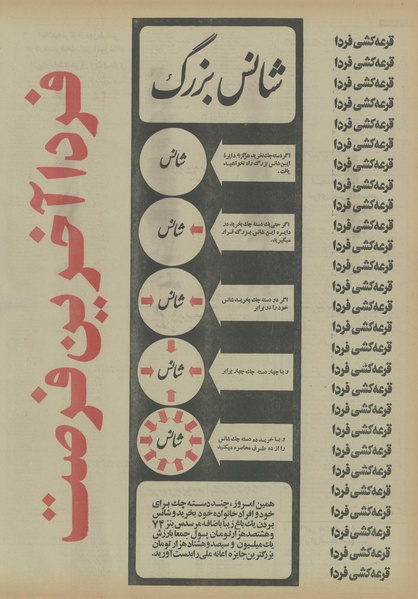 قرعه‌کشی فردا
قرعه‌کشی فردا
قرعه‌کشی فردا
قرعه‌کشی فردا
قرعه‌کشی فردا
قرعه‌کشی فردا
قرعه‌کشی فردا
قرعه‌کشی فردا
قرعه‌کشی فردا
قرعه‌کشی فردا
قرعه‌کشی فردا
قرعه‌کشی فردا
قرعه‌کشی فردا
قرعه‌کشی فردا
قرعه‌کشی فردا
قرعه‌کشی فردا
قرعه‌کشی فردا
قرعه‌کشی فردا
قرعه‌کشی فردا
قرعه‌کشی فردا
قرعه‌کشی فردا
قرعه‌کشی فردا
قرعه‌کشی فردا
قرعه‌کشی فردا
قرعه‌کشی فردا
قرعه‌کشی فردا
قرعه‌کشی فردا
شانس بزرگ
اگر دسته چك نخرید هرگز به دایرۀ
این شانس بزرگ راه نخواهید
یافت.
شانس
اگر حتی یك دسته چك بخرید در
دایره این شانس بزرگ قرار
میگیرید.
شانس
اگر دو دسته چك بخرید شانس
خود را دو برابر
شانس
و با چهار دسته چك چهار برابر
شانس
و با خرید ده دسته چك شانس
را از ده طرف محاصره میکنید
شانس
همین امروز، چند دسته چك برای
خود و افراد خانواده خود بخرید و شانس
بردن یك باغ زیبا باضافه مرسدس بنز ۷۴
و هشتصد هزار تومان پول جمعا بارزش
یك میلیون و سیصد و هشتاد هزار تومان
بزرگترین جایزه اعانه ملی را بدست آورید.
فردا آخرین فرصت